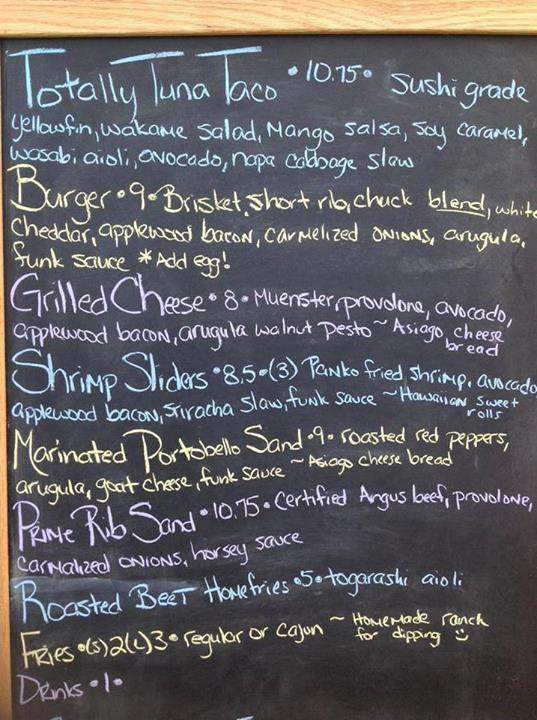 Totally Tuna Taco • 10.75 • Sushi grade
yellowfin, wakame salad, Mango salsa, Soy caramel,
wasabi aioli, avocado, napa cabbage slaw
Burger • 9 • Brisket, short rib, chuck blend, white
cheddar, applewood bacon, carmelized onions, arugula,
funk sauce * Add egg!
Grilled Cheese • 8 • Muenster, provolone, avocado,
applewood bacon, arugula walnut pesto ~ Asiago cheese
bread
Shrimp Sliders • 8.5 • (3) Panko fried shrimp, avocado
applewood bacon, sriracha slaw, funk sauce ~ Hawaiian sweet
rolls
Marinated Portobello Sand • 9 • roasted red peppers,
arugula, goat cheese, funk sauce ~ Asiago cheese bread
Prime Rib Sand • 10.75 • Certified Angus beef, provolone,
carmalized onions, horsey sauce
Roasted Beet Homefries • 5 • togarashi aioli
Fries • (s) 2 (L) 3 • regular or cajun ~ Homemade ranch
for dipping
Drinks • 1 •